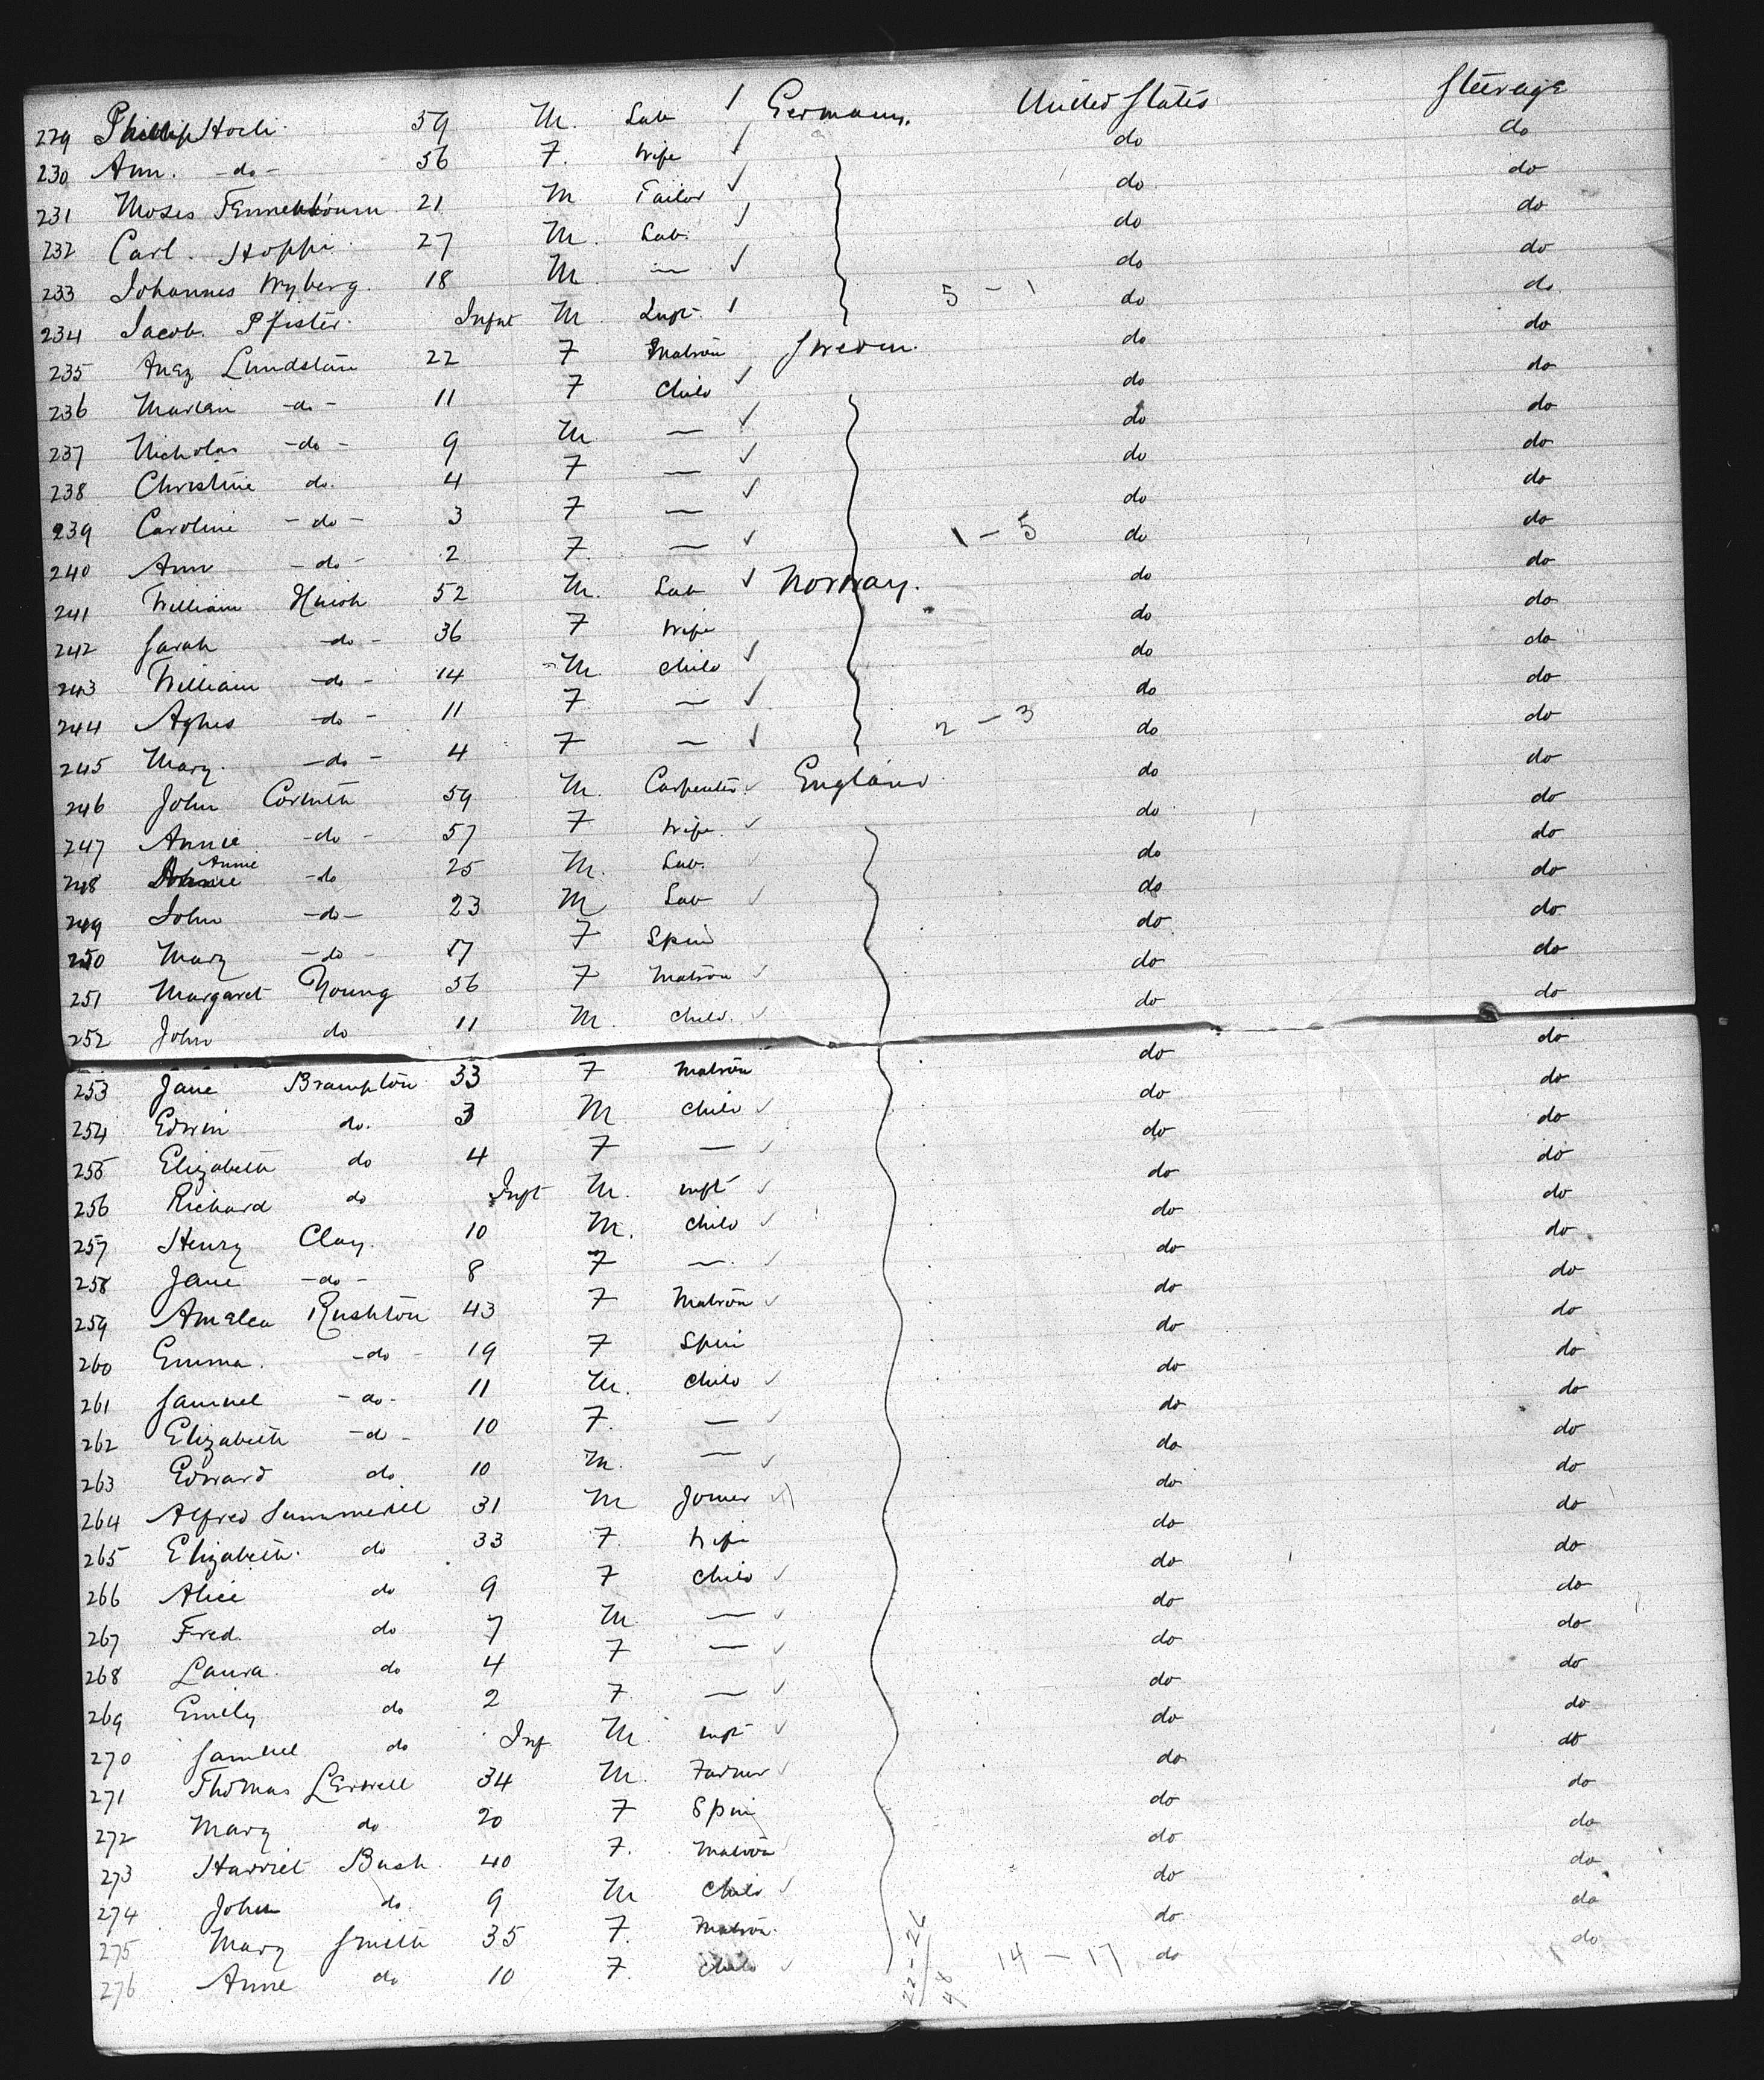 229 Phillip Horli 59 M. Lab Germany. United States Steerage
230 Ann. -do- 56 F. Wife do do
231 Moses Tennenbaum 21 M Tailor do do
232 Carl. Hoppi 27 M. Lab. do do
233 Johannes Wyberg. 18 M. — 5 - 1 do do
234 Jacob. Pfister Infnt M Inft. do do
235 Lundstän 22 F Matron Sweden. do do
236 -do- 11 F Child do do
237 Nicholas -do- 9 M — do do
238 Christine do. 4 F — do do
239 Caroline -do- 3 F — do do
240 Ann -do- 2 F. — 1 - 5 do do
241 William 52 M. Lab Norway. do do
242 Sarah -do- 36 F Wife do do
243 William -do- 14 M. Child do do
244 Agnes -do- 11 F — do do
245 Mary. -do- 4 F — 2 - 3 do do
246 John 59 M. Carpenter England do do
247 Annie -do- 57 F Wife. do do
248 Annie -do 25 M. Lab. do do
249 John -do- 23 M Lab do do
250 Mary -do- 17 F Spin do do
251 Margaret Young 56 F Matron do do
252 John do 11 M. Child. do do
253 Jane Brampton 33 F Matron do do
254 Edwin do. 3 M Child do do
255 Elizabeth do 4 F — do do
256 Richard do Inft M. inft do do
257 Henry Clay. 10 M. Child do do
258 Jane -do- 8 F — do do
259 Amelea Rushton 43 F Matron do do
260 Emma. -do- 19 F Spin do do
261 Samuel -do- 11 M. Child do do
262 Elizabeth -do- 10 F. — do do
263 Edward do 10 M. — do do
264 Alfred Summerill 31 M Joiner do do
265 Elizabeth. do 33 F. Wife do do
266 Alice do 9 F Child do do
267 Fred. do 7 M — do do
268 Laura. do 4 F — do do
269 Emily do 2 F. — do do
270 Samuel do Inf M inft do do
271 Thomas Lerwell 34 M. Farmer do do
272 Mary do 20 F Spin do do
273 Harriet Bush. 40 F. Matron do do
274 John do 9 M Child do do
275 Mary Smith 35 F. Matron. do do
276 Anne do 10 F. Child 22-26 48 14 - 17 do do